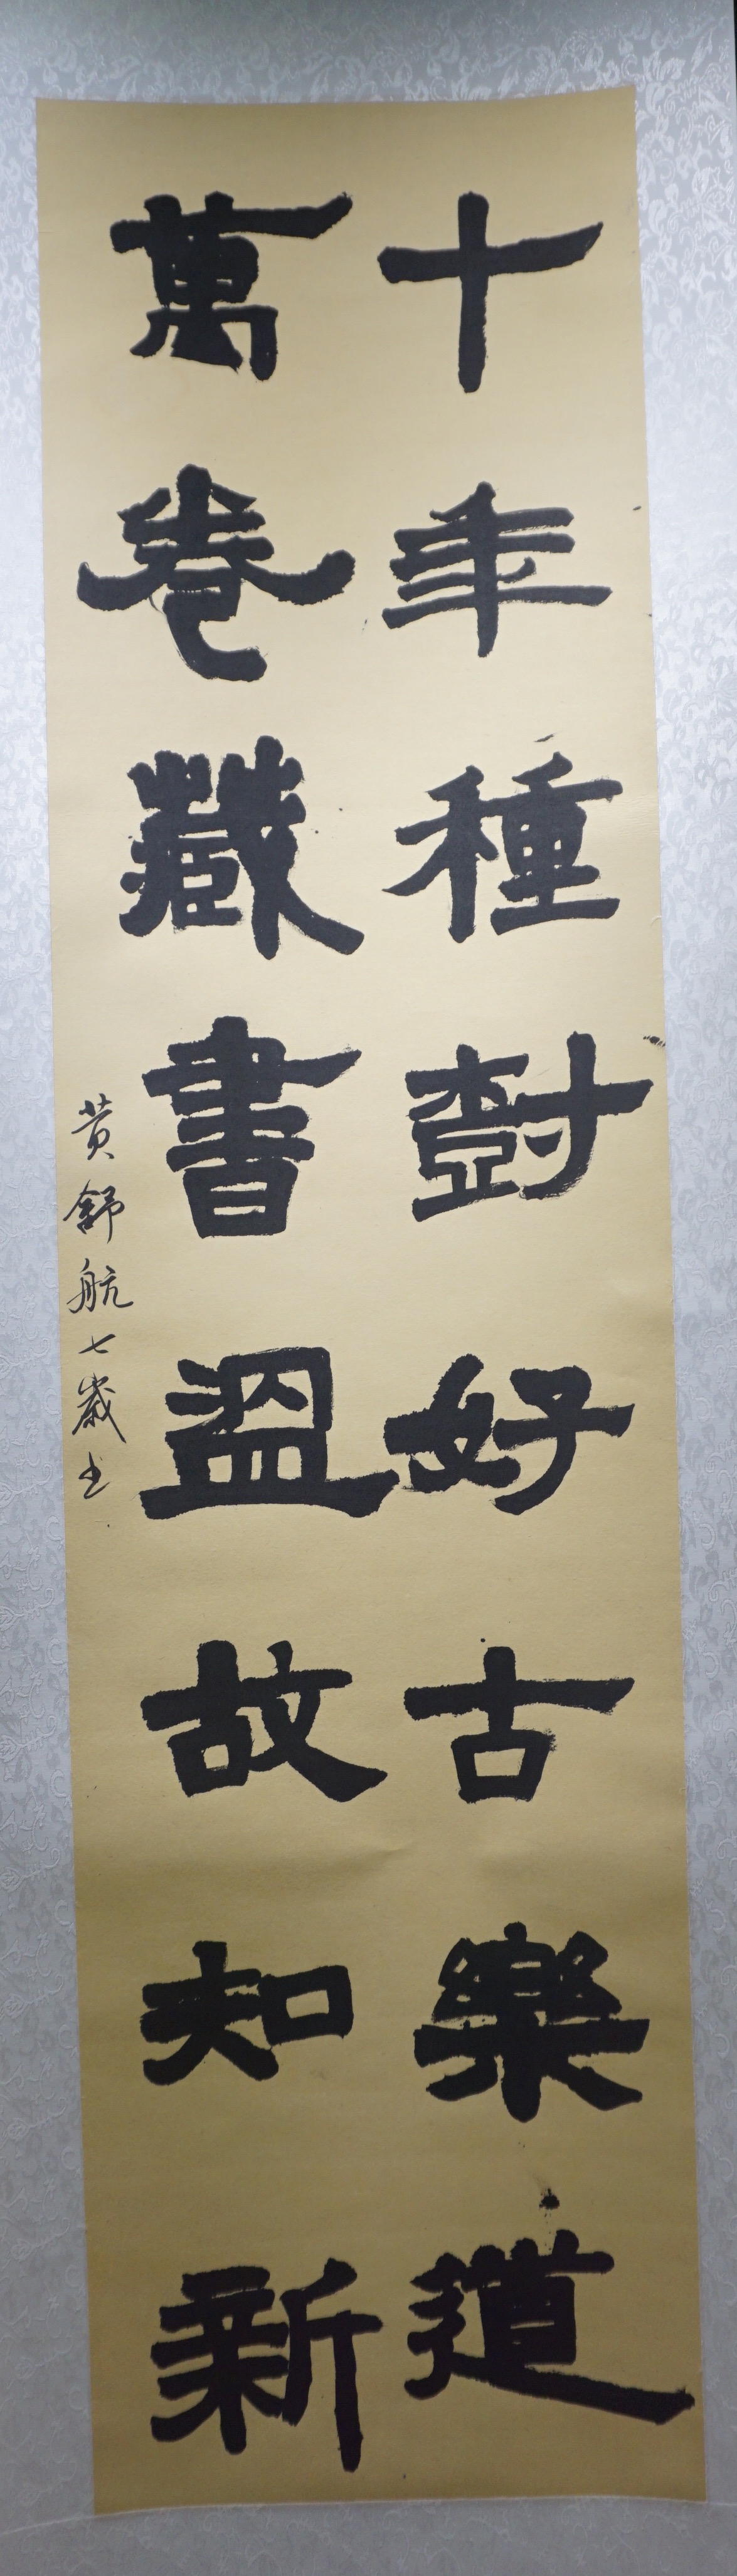 十年種樹好古樂道
萬卷藏書溫故知新
黄舒航七歲书